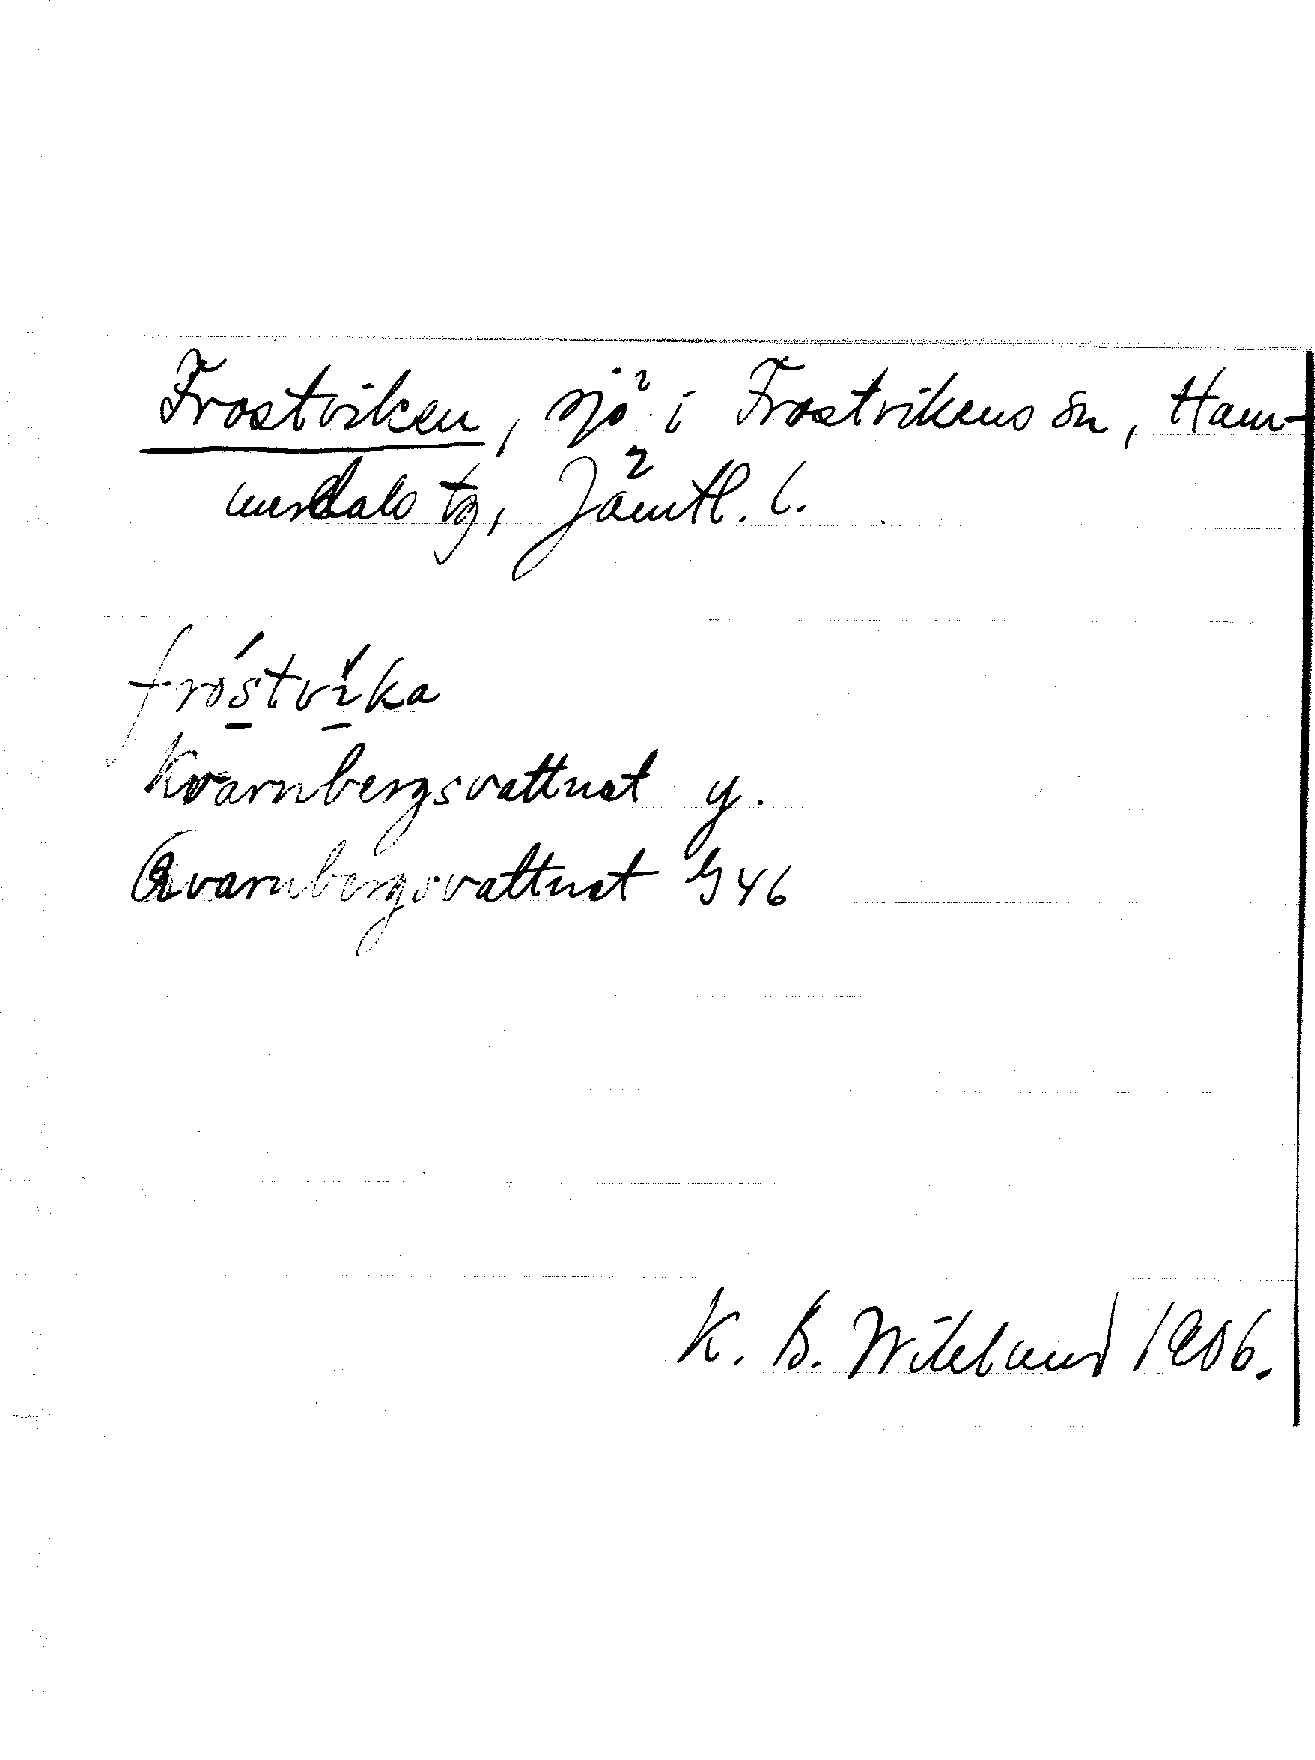 Frostviken, sjö i Frostvikens sn, Ham-
merdals tg, Jämtl. l.
fróstvìka
Kvarnbergsvattnet y.
Qvarnbergsvattnet G46
K. B. Wiklund 1906.